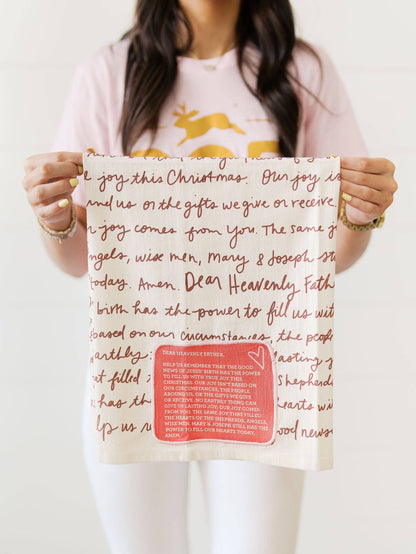 joy this Christmas. Our joy is
us or the gifts we give or receive.
joy comes from You. The same j
ngels, wise men, Mary & Joseph st
today. Amen. Dear Heavenly Fath
birth has the power to fill us wit
based on our circumstances, the people
earthly
lasting j
at filled
Shepherds
has th
hearts wi
lp us
ood news
DEAR HEAVENLY FATHER,
HELP US REMEMBER THAT THE GOOD
NEWS OF JESUS' BIRTH HAS THE POWER
TO FILL US WITH TRUE JOY THIS
CHRISTMAS. OUR JOY ISN'T BASED ON
OUR CIRCUMSTANCES, THE PEOPLE
AROUND US, OR THE GIFTS WE GIVE
OR RECEIVE. NO EARTHLY THING CAN
GIVE US LASTING JOY. OUR JOY COMES
FROM YOU. THE SAME JOY THAT FILLED
THE HEARTS OF THE SHEPHERDS, ANGELS,
WISE MEN, MARY & JOSEPH STILL HAS THE
POWER TO FILL OUR HEARTS TODAY.
AMEN.